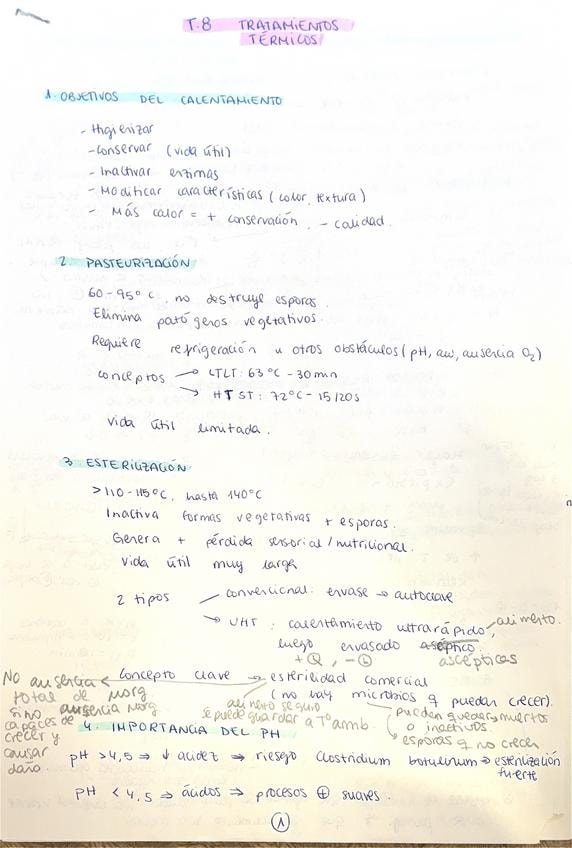 T.8 TRATAMIENTOS
TÉRMICOS
1. OBJETIVOS DEL CALENTAMIENTO
- Higienizar
- Conservar (vida útil)
- Inactivar enzimas
- Modificar características (color, textura)
- Más calor = + conservación, - calidad.
2. PASTEURIZACIÓN
60-95°C, no destruye esporas.
Elimina patógenos vegetativos.
Requiere refrigeración u otros obstáculos (pH, aw, ausencia O2)
conceptos → LTLT: 63°C - 30 min
→ HTST: 72°C - 15/20s
vida útil limitada.
3. ESTERILIZACIÓN
>110-115°C, hasta 140°C
Inactiva formas vegetativas + esporas.
Genera + pérdida sensorial/nutricional.
Vida útil muy larga
2 tipos
convencional: envase → autoclave
→ UHT: calentamiento ultrarápido, alimento.
luego envasado aséptico
ascépticas
Concepto clave → esterilidad comercial
(no hay microbios q puedan crecer).
No ausencia
total de morg
sino ausencia morg
capaces de
crecer y
causar
daño.
alimento seguro
se puede guardar a Tº amb.
pueden quedar muertos
o inactivos.
→ esporas q no crecen
4. IMPORTANCIA DEL PH
pH >4,5 ⇒ ↓ acidez ⇒ riesgo Clostridium botulinum ⇒ esterilización
fuerte
pH < 4,5 ⇒ ácidos ⇒ procesos ⊕ suaves.
1